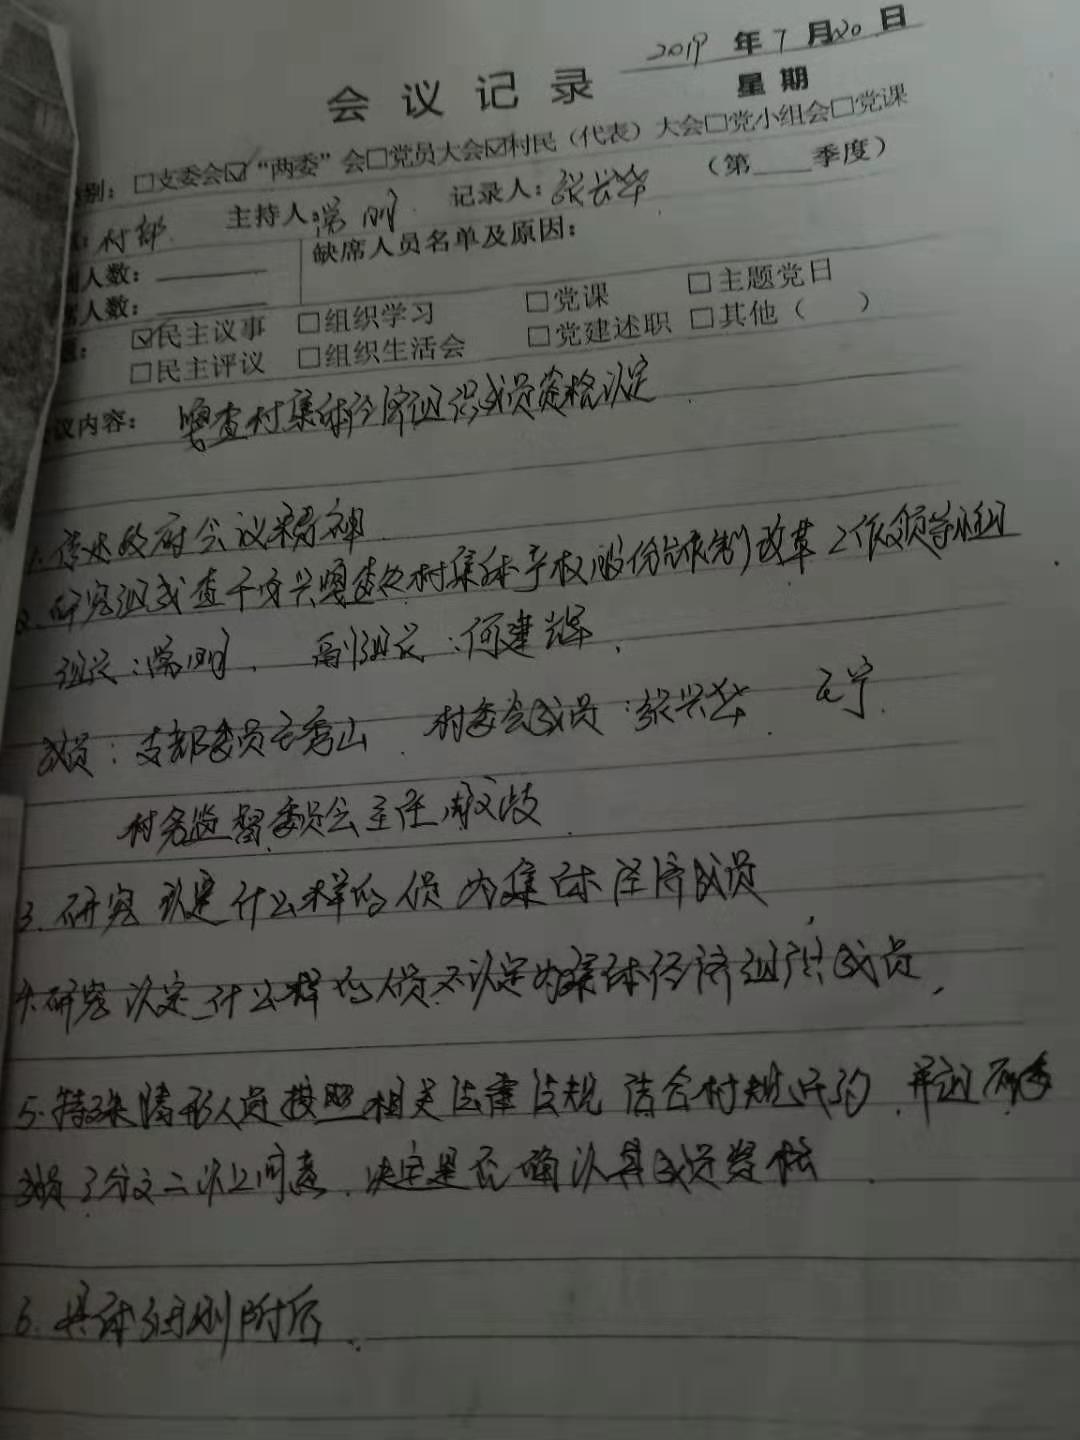 2019年7月20日
会议记录
星期
别：□支委会☑“两委”会□党员大会☑村民（代表）大会□党小组会□党课
：村部 主持人：常明 记录人：张兴华 （第____季度）
人数： 缺席人员名单及原因：
人数：
☑民主议事 □组织学习 □党课 □主题党日
□民主评议 □组织生活会 □党建述职 □其他（ ）
议内容： 嘎查村集体经济组织成员资格认定
1.传达政府会议精神
2.研究组成查干 兴嘎查 村集体产权股份合作制改革工作领导小组
组长：常明、 副组长：何建辉、
成员：支部委员 秀山、村委会成员：张兴华、 宁
村务监督委员会主任
3.研究认定什么样的人员为集体经济成员
4.研究认定什么样的人员不认定为集体经济组织成员、
5.特殊情形人员按照相关法律法规 结合村规民约、并
成员3分之二以上同意、决定是否确认其成员资格、
6.具体细则附后、